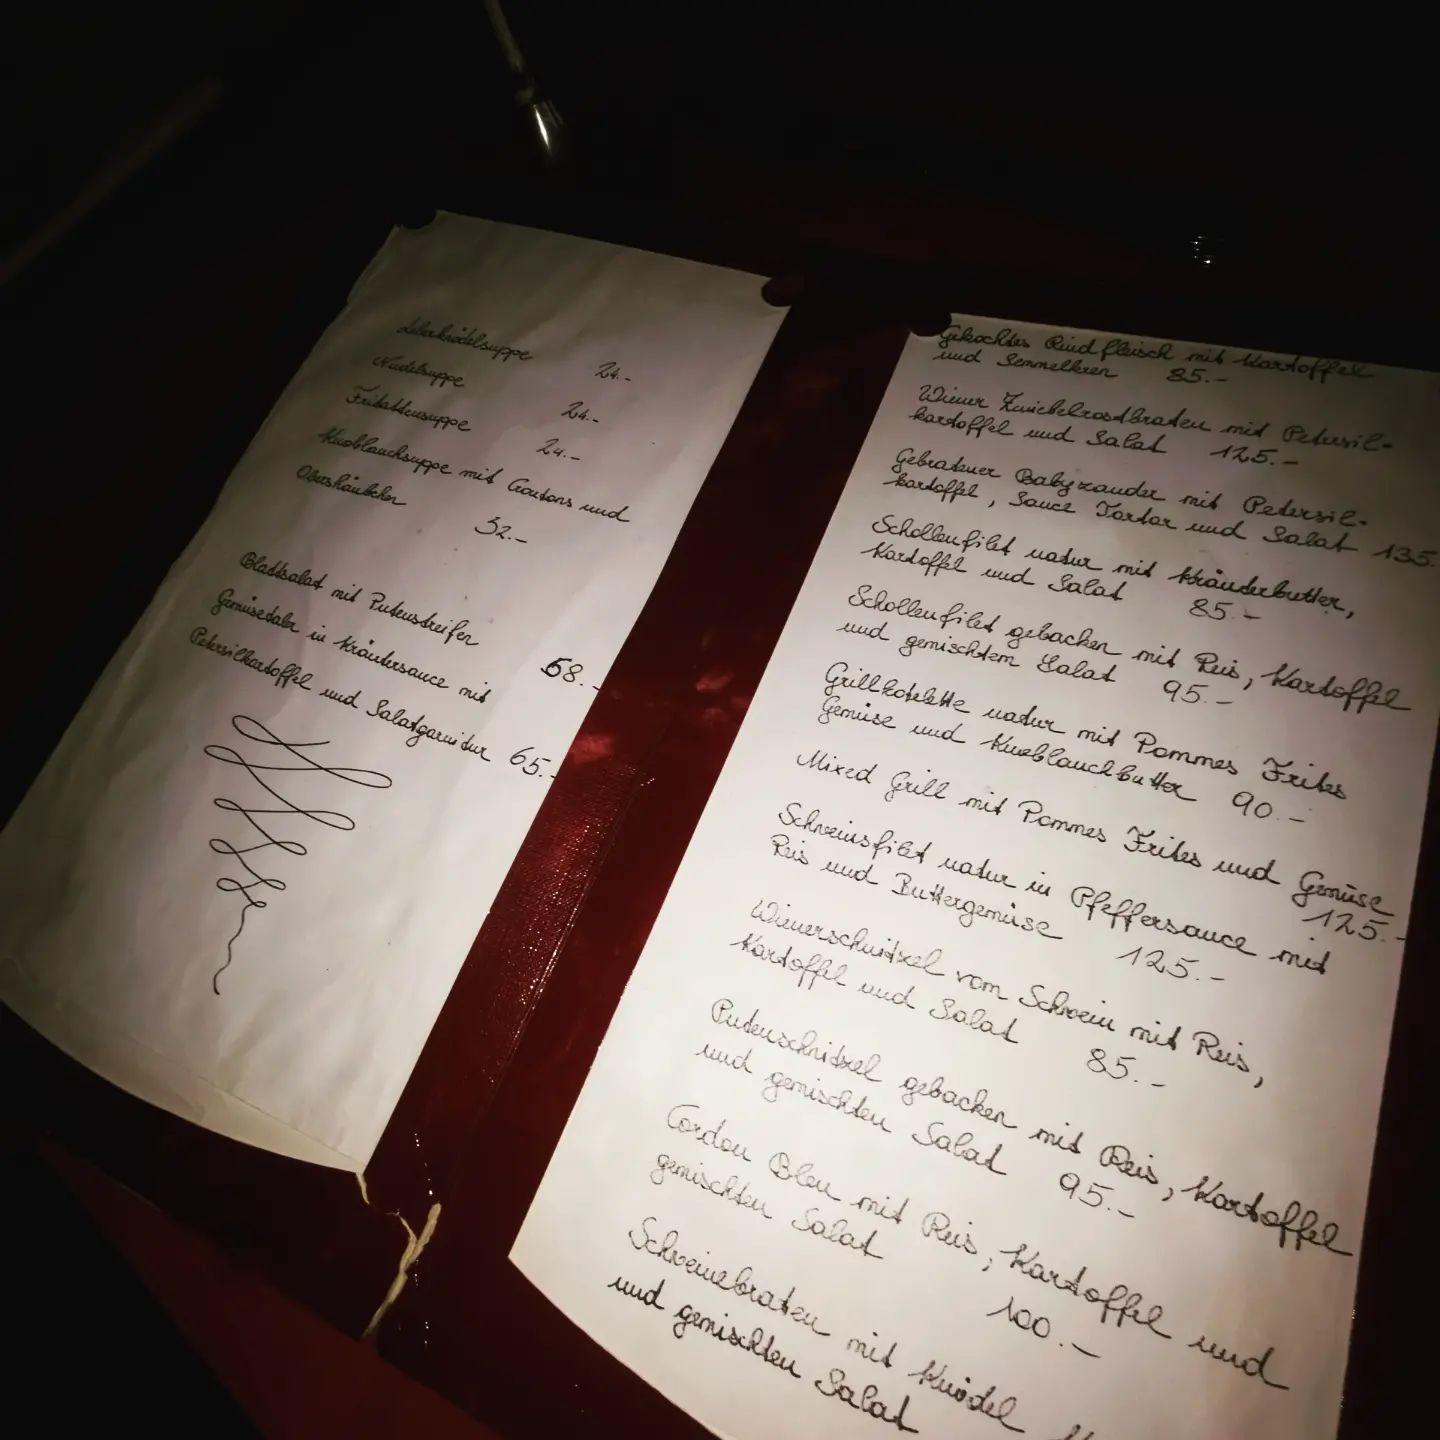 Leberknödelsuppe 24.-
Nudelsuppe 24.-
Fritattensuppe 24.-
Knoblauchsuppe mit Croutons und
Obershäubchen 32.-
Blattsalat mit Putenstreifen 68.-
Gemüsetaler in Kräutersauce mit
Petersilkartoffel und Salatgarnitur 65.-
Gekochtes Rindfleisch mit Kartoffel
und Semmelkren 85.-
Wiener Zwiebelrostbraten mit Petersil-
kartoffel und Salat 125.-
Gebratener Babyzander mit Petersil-
kartoffel, Sauce Tartar und Salat 135.
Schollenfilet natur mit Kräuterbutter,
Kartoffel und Salat 85.-
Schollenfilet gebacken mit Reis, Kartoffel
und gemischtem Salat 95.-
Grillkotelette natur mit Pommes Frites
Gemüse und Knoblauchbutter 90.-
Mixed Grill mit Pommes Frites und Gemüse
125.-
Schweinsfilet natur in Pfeffersauce mit
Reis und Buttergemüse 125.-
Wienerschnitzel vom Schwein mit Reis,
Kartoffel und Salat 85.-
Putenschnitzel gebacken mit Reis, Kartoffel
und gemischten Salat 95.-
Cordon Bleu mit Reis, Kartoffel und
gemischten Salat 100.-
Schweinebraten mit Knödel
und gemischten Salat